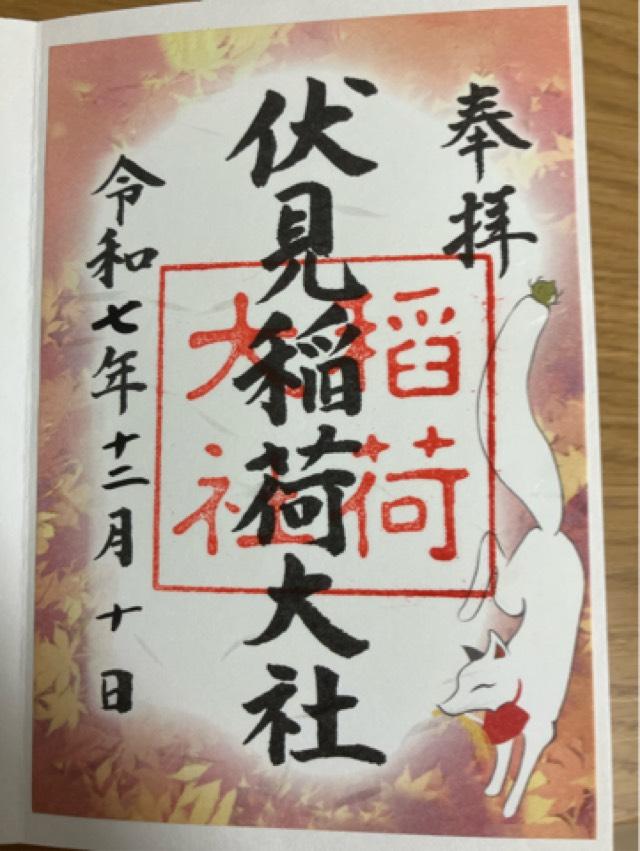 奉拝
伏見稲荷大社
稲荷
大社
令和七年十二月十日